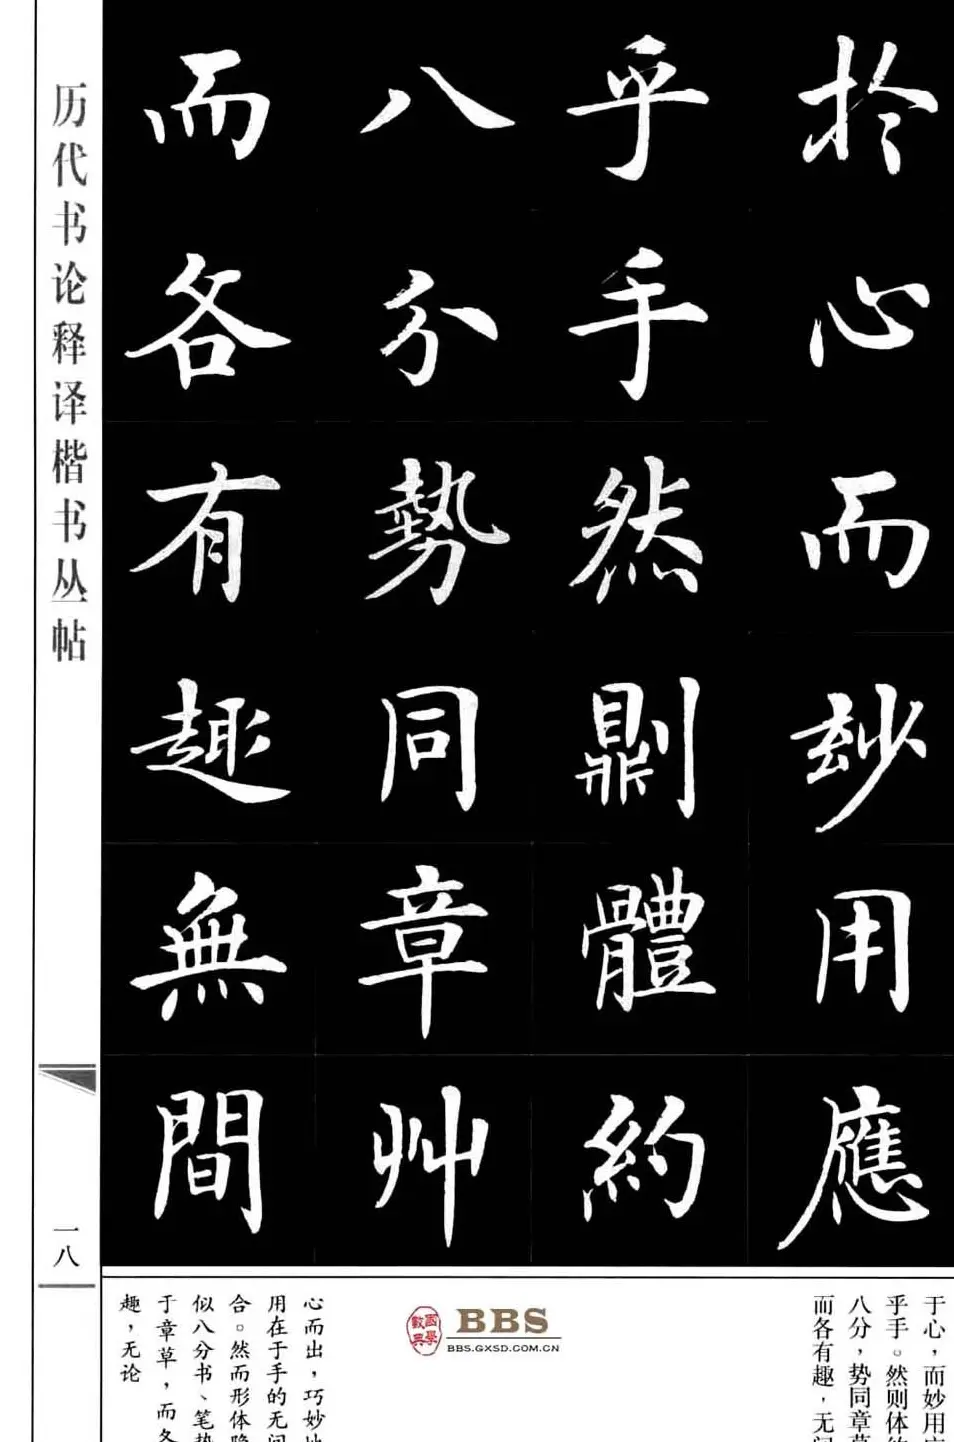 於心而玅用應
乎手然劓體約
八分勢同章艸
而各有趣無間
历代书论释译楷书丛帖
一八
于心，而妙用应
乎手。然则体约
八分，势同章草
而各有趣，无间
國學數典
BBS
BBS.GXSD.COM.CN
心而出，巧妙地
用在于手的无间
合。然而形体隐
似八分书、笔势
于章草，而各
趣，无论